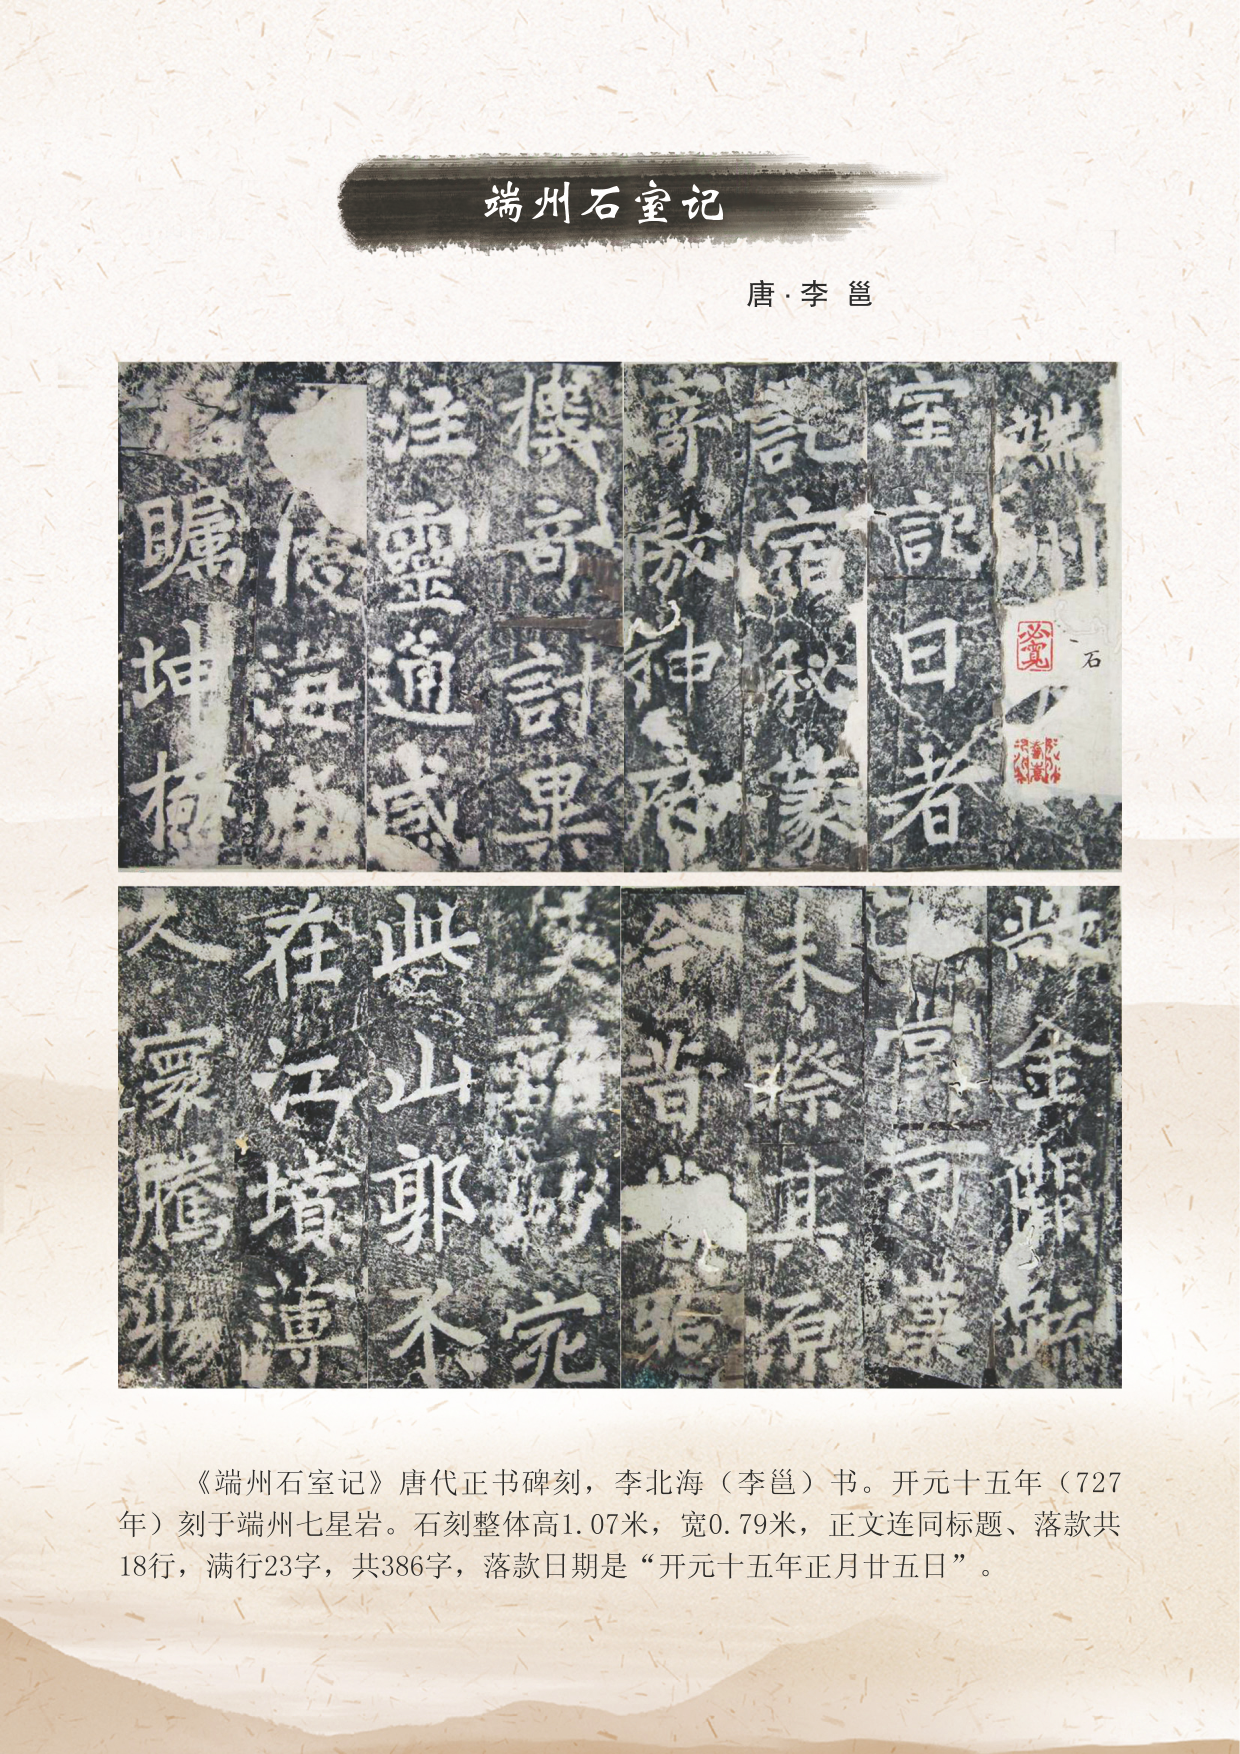 端州石室记
唐·李 邕
端州
石
室記曰者
託宿秘篆
寄敖神府
撰奇討異
注靈通感
海
矚坤極
金闕
可
未際其原
今昔
妙宛
此山郭不
在江墳薄
人寰騰物
《端州石室记》唐代正书碑刻，李北海（李邕）书。开元十五年（727
年）刻于端州七星岩。石刻整体高1.07米，宽0.79米，正文连同标题、落款共
18行，满行23字，共386字，落款日期是“开元十五年正月廿五日”。